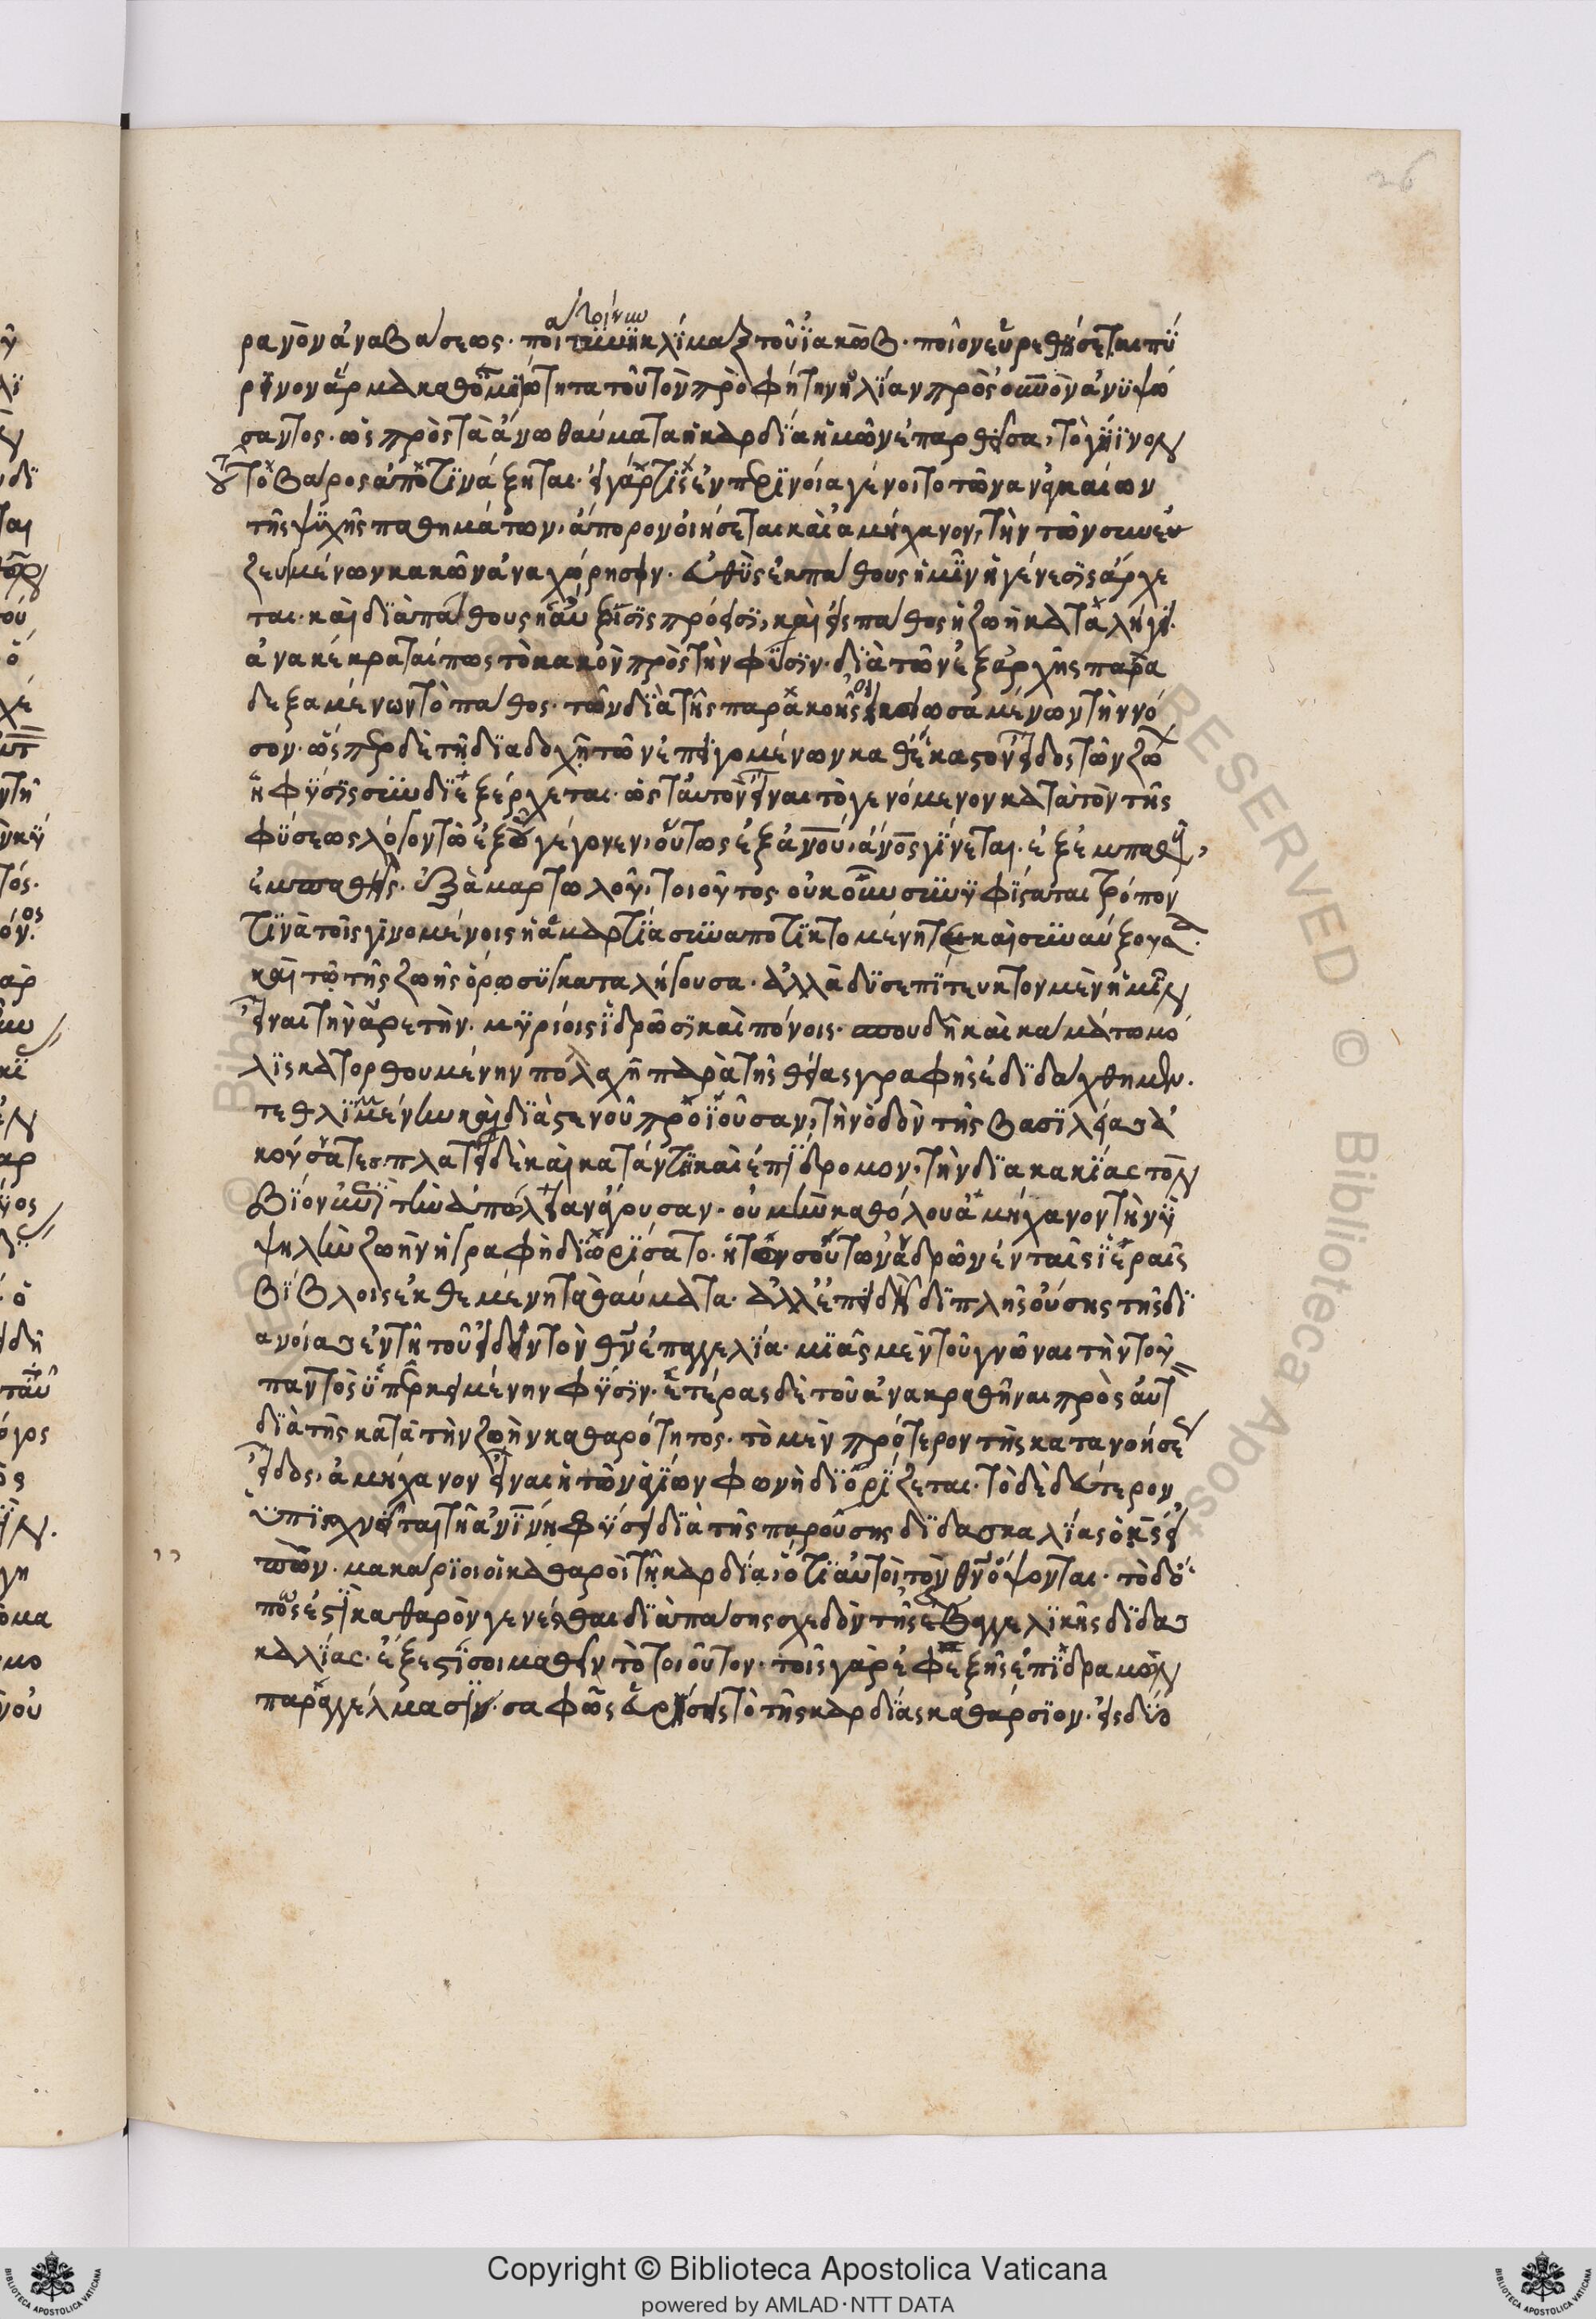 ρανὸν ἀναβάσεως. ποία τοιαύτη κλίμαξ τοῦ ἰακώβ. ποῖον εὑρεθήσεται πύ
ρινον ἅρμα καθ' ὁμοιότητα τοῦ τὸν προφήτην ἠλίαν πρὸς οὐνὸν ἀνυψώ
σαντος. ὡς πρὸς τὰ ἄνω θαύματα ἡ καρδία ἡμῶν ἐπαρθεῖσα, τὸ γήϊνον
τοῦτο βάρος ἀποτινάξηται. εἰ γάρ τις ἐν περινοία γένοιτο τῶν ἀναγκαίων
τῆς ψυχῆς παθημάτων, ἄπορον οἰήσεται καὶ ἀμήχανον, τὴν τῶν συνε
ζευγμένων κακῶν ἀναχώρησιν. εὐθὺς ἐκ πάθους ἡμῖν ἡ γένεσις ἄρχε
ται. καὶ διὰ πάθους ἡ αὔξησις πρόεισι, καὶ εἰς πάθος ἡ ζωὴ καταλήγει.
ἀνακέκραταί πως τὸ κακὸν πρὸς τὴν φύσιν. διὰ τῶν ἐξ ἀρχῆς παρα
δεξαμένων τὸ πάθος. τῶν διὰ τῆς παρακοῆς οἰκειωσαμένων τὴν νό
σον. ὥσπερ δὲ τῇ διαδοχῇ τῶν ἐπειγομένων καθ' ἕκαστον εἶδος τῶν ζώ
ἡ φύσις συνδιεξέρχεται. ὡς ταυτὸν εἶναι τὸ γενόμενον κατὰ τὸν τῆς
φύσεως λόγον τῶ ἐξ οὗ γέγονεν, οὕτως ἐξ ἀνοῦ, ἄνος γίνεται. ἐξ ἐμπαθοῦς,
ἐμπαθής. ἐξ ἁμαρτωλοῦ, τοιοῦτος. οὐκοῦν συνυφίσταται τρόπον
τινὰ τοῖς γινομένοις ἡ ἁμαρτία συναποτικτομένη τε καὶ συναύξουσα.
καὶ τῷ τῆς ζωῆς ὅρῳ συγκαταλήγουσα. ἀλλὰ δυσεπίτευκτον μὲν ἡμῖν
εἶναι τὴν ἀρετὴν. μυρίοις ἱδρῶσι καὶ πόνοις. σπουδῇ καὶ καμάτω μό
λις κατορθουμένην πολλαχῇ παρὰ τῆς θείας γραφῆς ἐδιδάχθημεν.
τεθλιμμένην καὶ διὰ στενοῦ προϊοῦσαν, τὴν ὁδὸν τῆς βασιλείας ἀ
κούσαντες. πλατεῖαν δὲ καὶ κατάντη καὶ ἐπίδρομον, τὴν διὰ κακίας τὸν
βίον τὴν ἀπώλειαν ἄγουσαν. οὐ μὴν καθόλου ἀμήχανον τὴν ὑ
ψηλὴν ζωὴν ἡ γραφὴ διωρίσατο. ἡ τῶν τοσούτων ἀνδρῶν ἐν ταῖς ἱεραῖς
βίβλοις ἐκθεμένη τὰ θαύματα. ἀλλ' ἐπειδὴ διπλῆς οὔσης τῆς δι
ανοίας ἐν τῇ τοῦ ἰδεῖν τὸν θν ἐπαγγελία. μιᾶς μὲν τοῦ γνῶναι τὴν τοῦ
παντὸς ὑπερκειμένην φύσιν. ἑτέρας δὲ τοῦ ἀνακραθῆναι πρὸς αὐτ
διὰ τῆς κατὰ τὴν ζωὴν καθαρότητος. τὸ μὲν πρότερον τῆς κατανοήσε
εἶδος, ἀμήχανον εἶναι ἡ τῶν ἁγίων φωνὴ διορίζεται. τὸ δὲ δεύτερον
ὑπισχνεῖται τῇ ἀνίνῃ φύσει διὰ τῆς παρούσης διδασκαλίας ὁ κς εἰ
πῶν. μακάριοι οἱ καθαροὶ τῇ καρδίᾳ, ὅτι αὐτοὶ τὸν θν ὄψονται. τὸ δὲ
πῶς ἔστι καθαρὸν γενέσθαι διὰ πάσης σχεδὸν τῆς εὐαγγελικῆς διδας
καλίας. ἔξεστί σοι μαθεῖν τὸ τοιοῦτον. τοῖς γὰρ ἐφεξῆς ἐπιδραμὼν
παραγγέλμασιν. σαφῶς εὑρήσεις τὸ τῆς καρδίας καθάρσιον. εἰς δύο
Copyright © Biblioteca Apostolica Vaticana
powered by AMLAD·NTT DATA